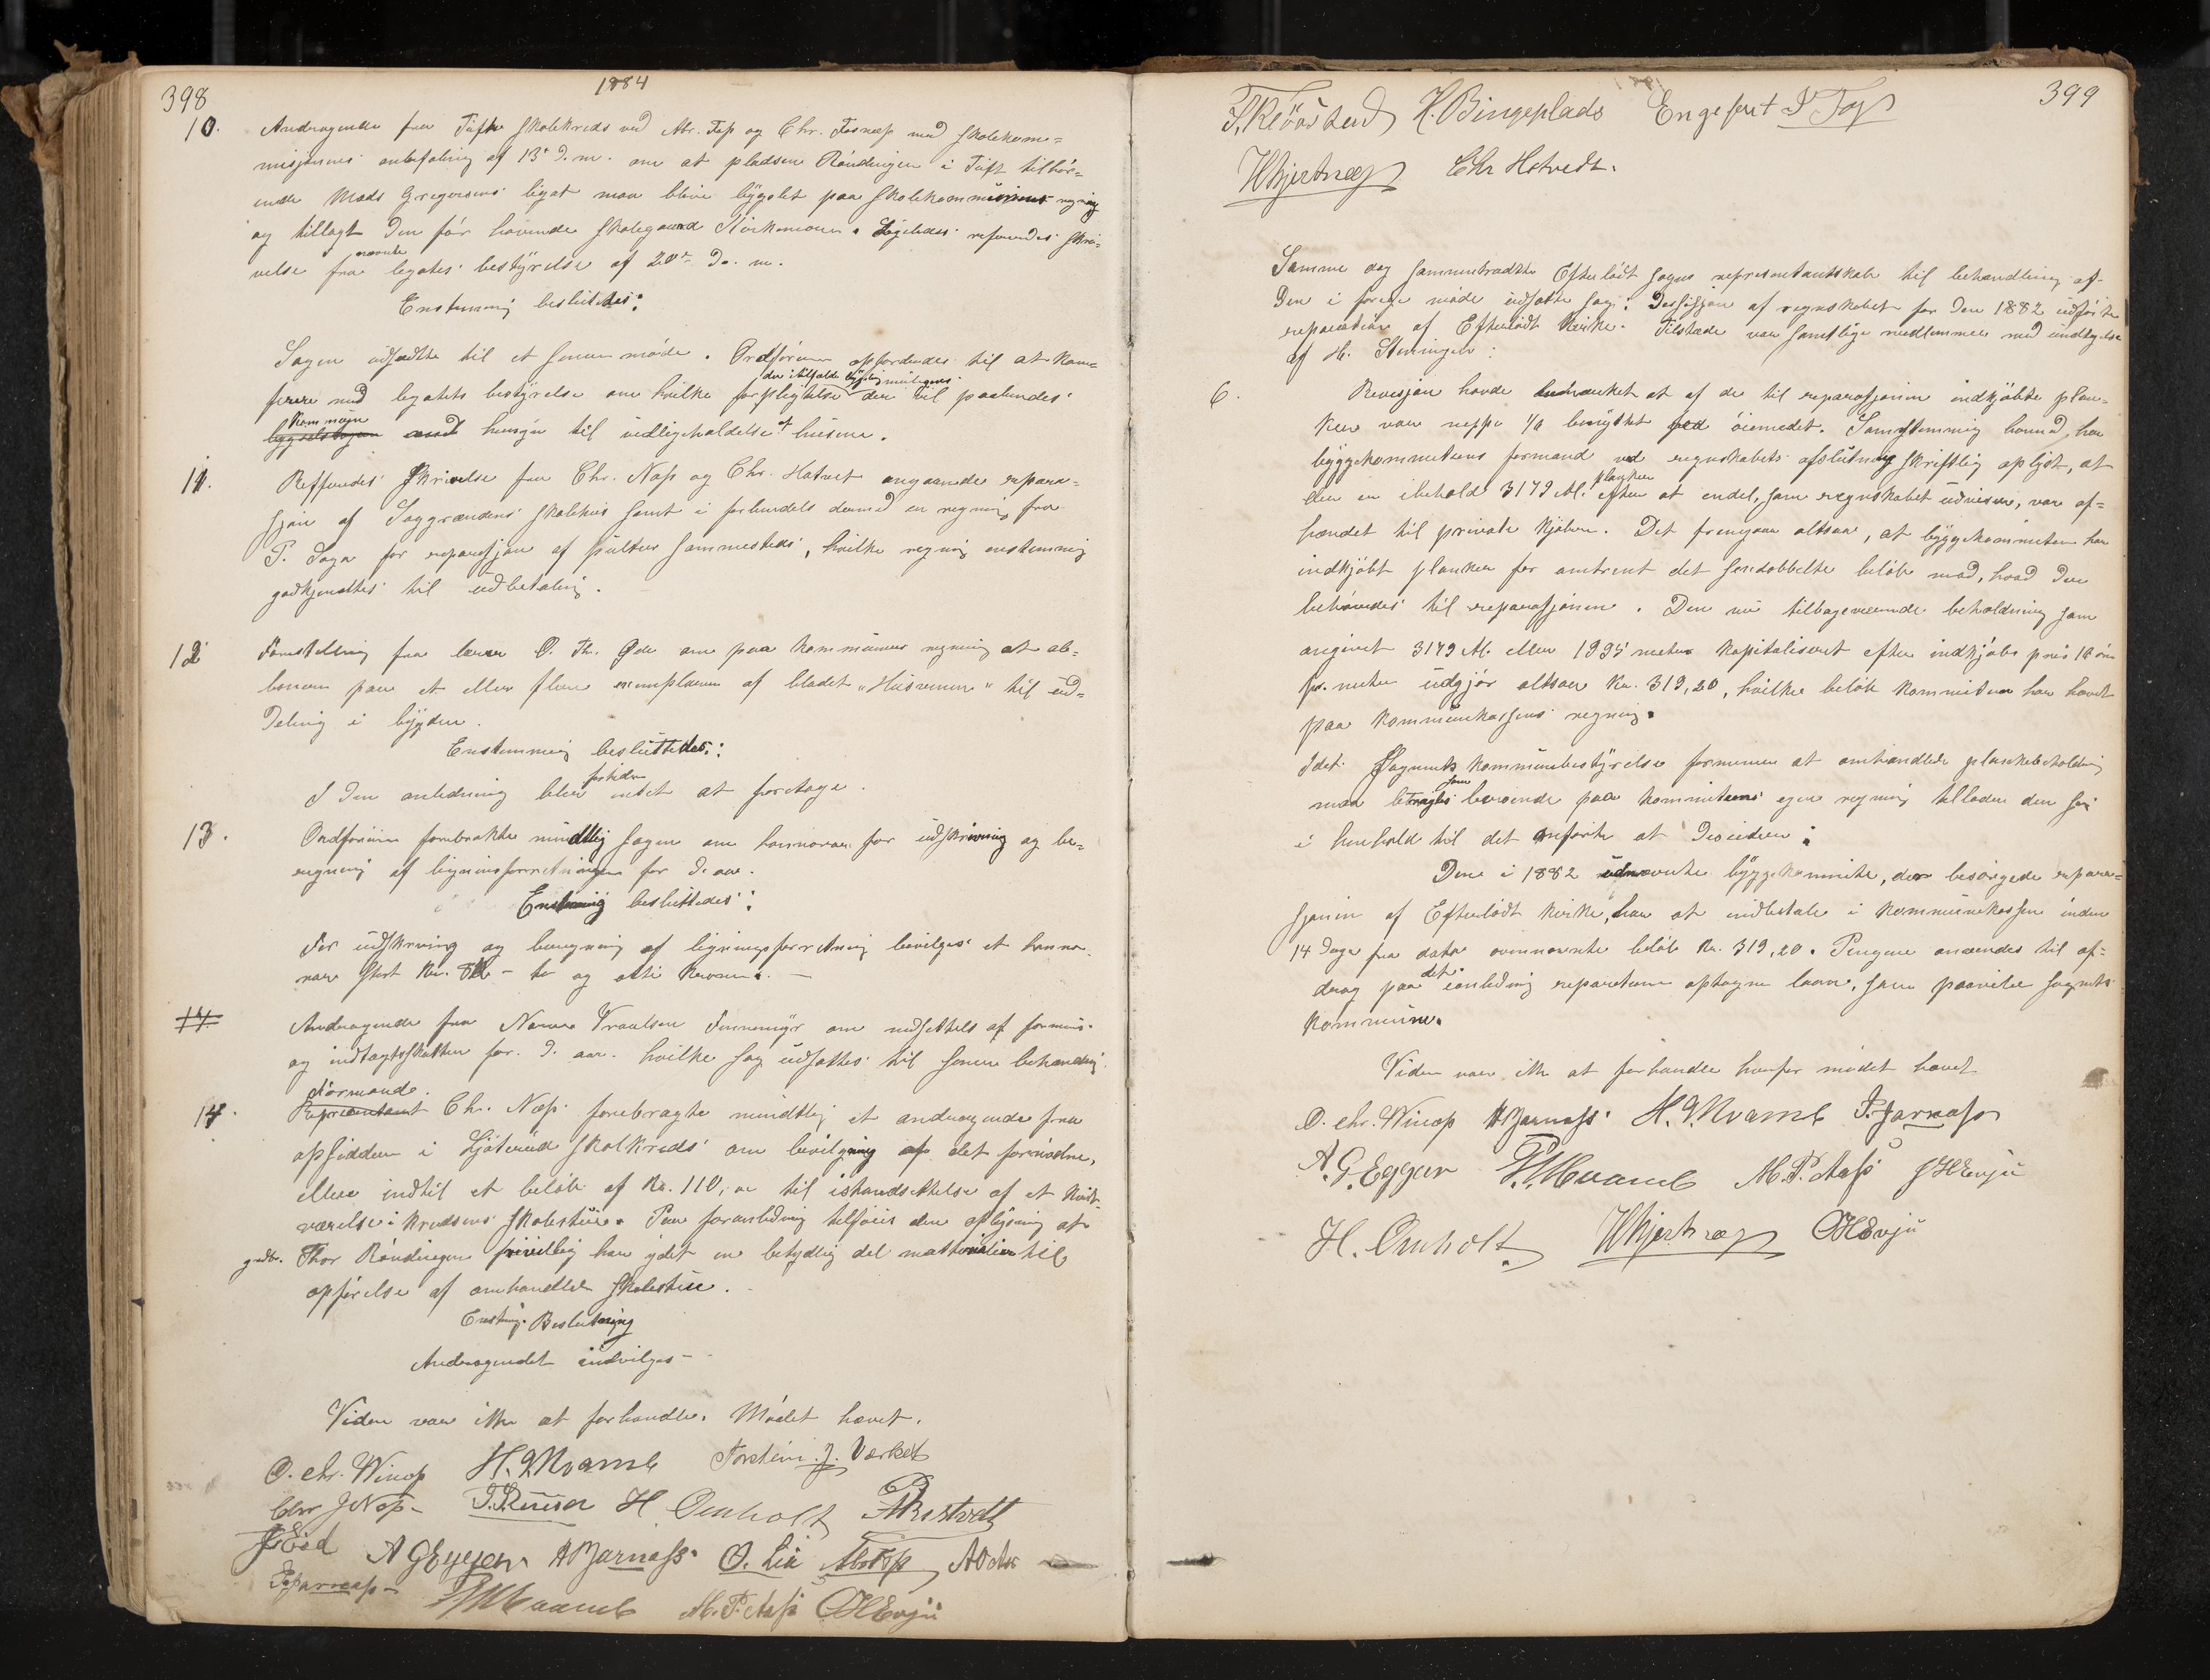 398
1884
10. Andragende fra Tuft skolekreds ved Abr. Top og Chr. Fosnæs med skolekom=
misjonens anbefaling af 13de d. m. om at pladsen Røndingen i Tuft tilhør=
ende Mads Gregersens legat maa blive bygslet paa skolekommisionens regning
og tillagt den før havende skolegaard Kirkemoen. Ligeledes refereredes skri=
velse fra nævnte legates bestyrelse af 20de ds. m.
Enstemmig besluttedes:
Sagen udsattes til et senere møde. Ordføreren opfordredes til at kon=
ferere med legatets bestyrelse om hvilke forpligtelse der i tilfælde bygslig muligens vil paabindes
kommunen med hensyn til vedligeholdelse af husene.
11. Refferedes skrivelse fra Chr. Næs og Chr. Hatvet angaaende repara=
sjon af Saggrændens skolehus samt i forbindels dermed en regning fra
P. Saga for reparasjon af pulter sammesteds, hvilke regning enstemmig
godkjendtes til udbetaling.
12 Forestilling fra lærer O. Th. Øde om paa kommunens regning at ab=
bonere paa et eller flere exemplarer af bladet "Husvennen" til ud=
deling i bygden.
Enstemmig besluttedes:
I den anledning blev fortiden intet at foretage.
13. Ordføreren forebrakte mundtlig sagen om honnorar for udskrivning og be=
regning af ligningsforretningen for d. aar.
Enstemmig besluttedes:
For udskrivning og beregning af ligningsforretning bevilges et honno=
rar stort Kr. 82 – to og otti kroner. –
14. Andragende fra Narve Traalsen Funnemyr om nedsettels af formues=
og indtægtsskatten for d. aar. hvilke sag udsattes til senere behandling.
14. Formand Representant Chr. Næs forebragte mundtlig et andragende fra
opsiddere i Hjøterud skolkreds om bevilgning af det fornødne,
eller indtil et beløb af Kr. 110, – til istandsettelse af et kvist=
værelse i kredsens skolestue. Paa foranledning tilføies den oplysning at
gdbr. Thor Røndingen frivillig har ydet en betydlig del matterialier til
opførelse af omhandlede skolestue.
Enstg. Beslutning
Andragendet indvilges –
Viden var ikke at forhandle. Mødet hævet.
O. Chr. Winæs H. J. Kvamb Torstein J. Værket
Chr J Næs – T. Ruud H Omholt
J Eid A G Eggen A Jarnæss O. Lia Abr Top
T. Jarnæs – P. Kvamb M. P. Aass O H Evju
399
T. Kløvstad H. Bingeplads Engebret J Top
H Hjertnæs Chr Hotvedt.
Samme dag sammentraadte Efteløt sogns representantskab til behandling af
den i forrige møde udsatte sag: Desisjon af regnskabet for den 1882 udførte
reparation af Eftelødt kirke. Tilstede var samtlige medlemmer med undtagelse
af H. Steningen:
6. Revisjon havde bemærket at af de til reparasjonen indkjøbte plan=
ker var neppe 1/2 benyttet ved øiemedet. Samstemmig hermed, har
byggekommiteens formand ved regnskabets afslutning skriftlig oplyst, at
der er ibehold 3179 Al. planker efter at endel, som regnskabet udviser, var af=
hændet til private kjøbere. Det fremgaar altsaa, at byggekommiteen har
indkjøbt planker for omtrent det fordobbelte beløb mod, hvad der
behøvedes til reparasjonen. Den nu tilbageværende beholdning som
angivet 3179 Al. eller 1995 meter kapitaliseret efter indkjøbs pris 16 øre
pr. meter udgjør altsaa Kr. 319,20, hvilke beløb kommiteen har hævet
paa kommunekassens regning.
Idet Sognets kommunebestyrelse formener at omhandlede plankebeholdning
maa betragtes som beroende paa kommiteens egen regning tillader den sig
i henhold til det anførte at Desidere:
Den i 1882 udnævnte byggekommite, der besørgede repara=
sjonen af Eftelødt kirke, har at indbetale i kommunekassen inden
14 dage fra dato ovennævnte beløb Kr. 319,20. Pengene anvendes til af=
drag paa det i anledning reparationen optagne laan, som paavilet sognets
kommune.
Viden var ikke at forhandle hvorfor mødet hævet.
O. Chr. Winæs A Jarnæss H. J. Kvamb T. Jarnæss
A. G. Eggen P. Kvamb M. P. Aass J H Evju
H. Omholt H Hjertnæs O H Evju